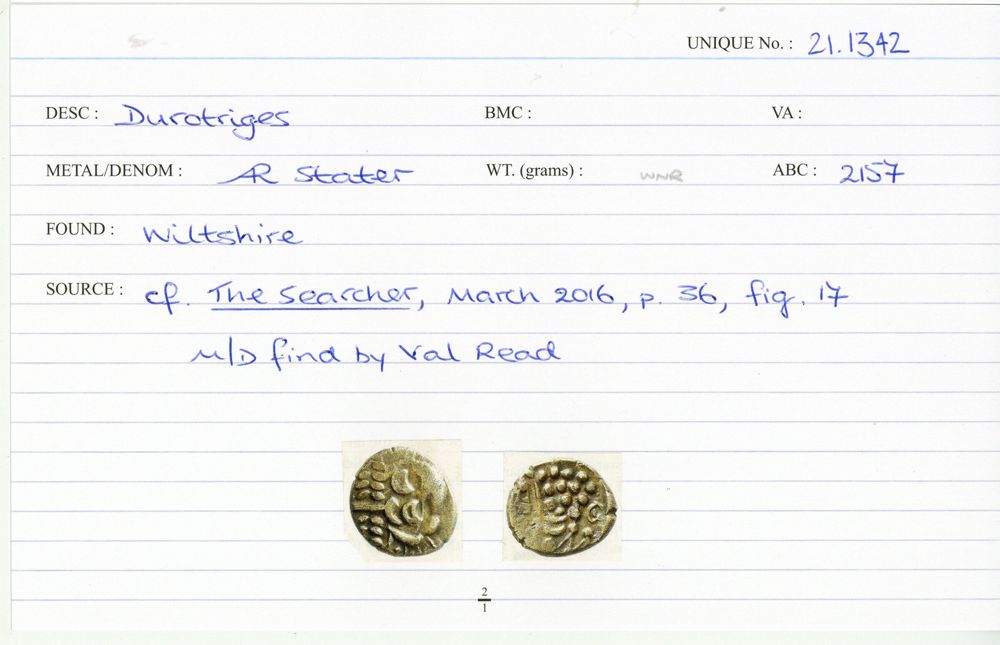 UNIQUE No. : 21.1342
DESC : Durotriges BMC : VA :
METAL/DENOM : AR Stater WT. (grams) : WNR ABC : 2157
FOUND : Wiltshire
SOURCE : cf. The Searcher, March 2016, p. 36, fig. 17
M/D find by Val Read
2
1